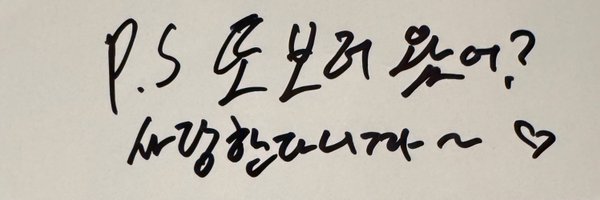 P.S 또 보러 왔어?
사랑한다니까~ ♡